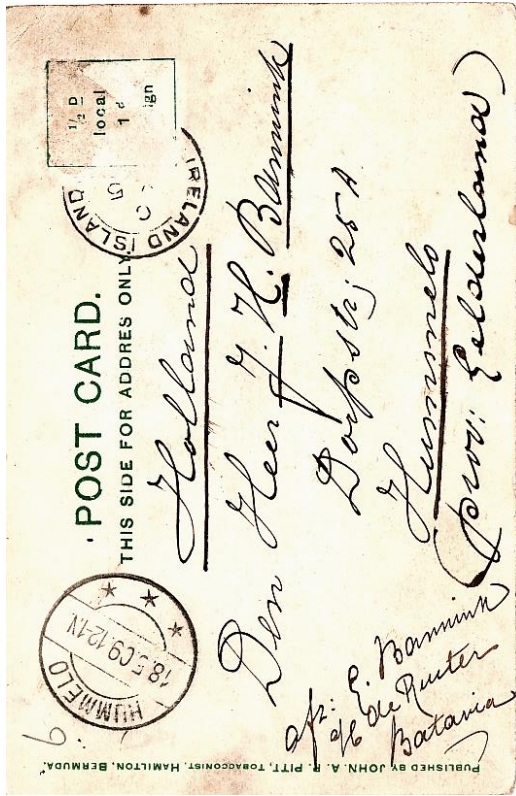 POST CARD.
THIS SIDE FOR ADDRES ONLY
½ D
local
1 d
ign
IRELAND ISLAND
HUMMELO
18.5.09.12-1N
Holland
Den Heer J. H. Bannink
Dorpstr; 25 A
Hummelo
(prov: Gelderland)
afz: E. Bannink
de Ruiter
Batavia
PUBLISHED BY JOHN. A. R. PITT, TOBACCONIST. HAMILTON, BERMUDA.